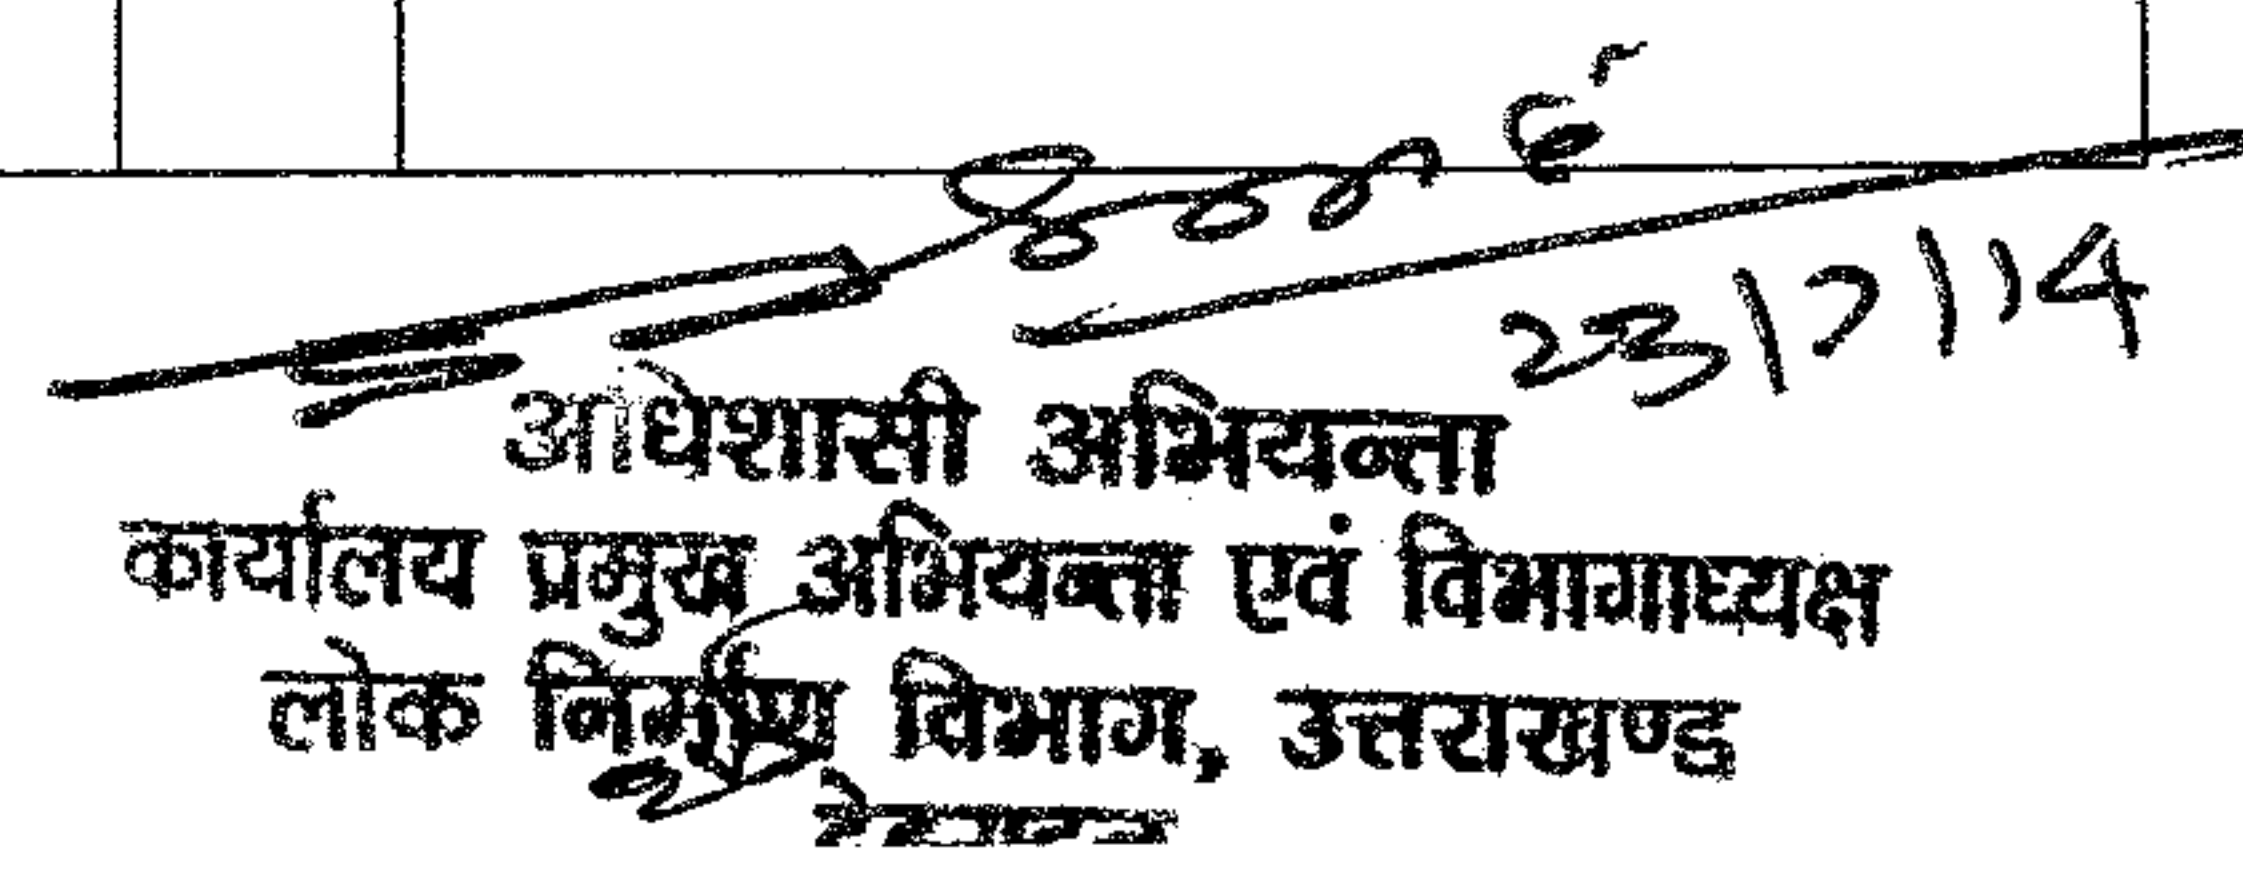 23/7/14
अधिशासी अभियन्ता
कार्यालय प्रमुख अभियन्ता एवं विभागाध्यक्ष
लोक निर्माण विभाग, उत्तराखण्ड